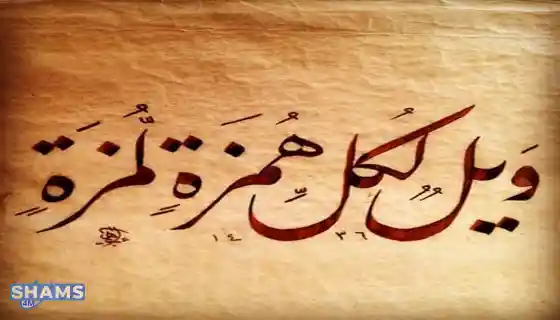 وَيْلٌ لِّكُلِّ هُمَزَةٍ لُّمَزَةٍ
١٤٣٦
SHAMS